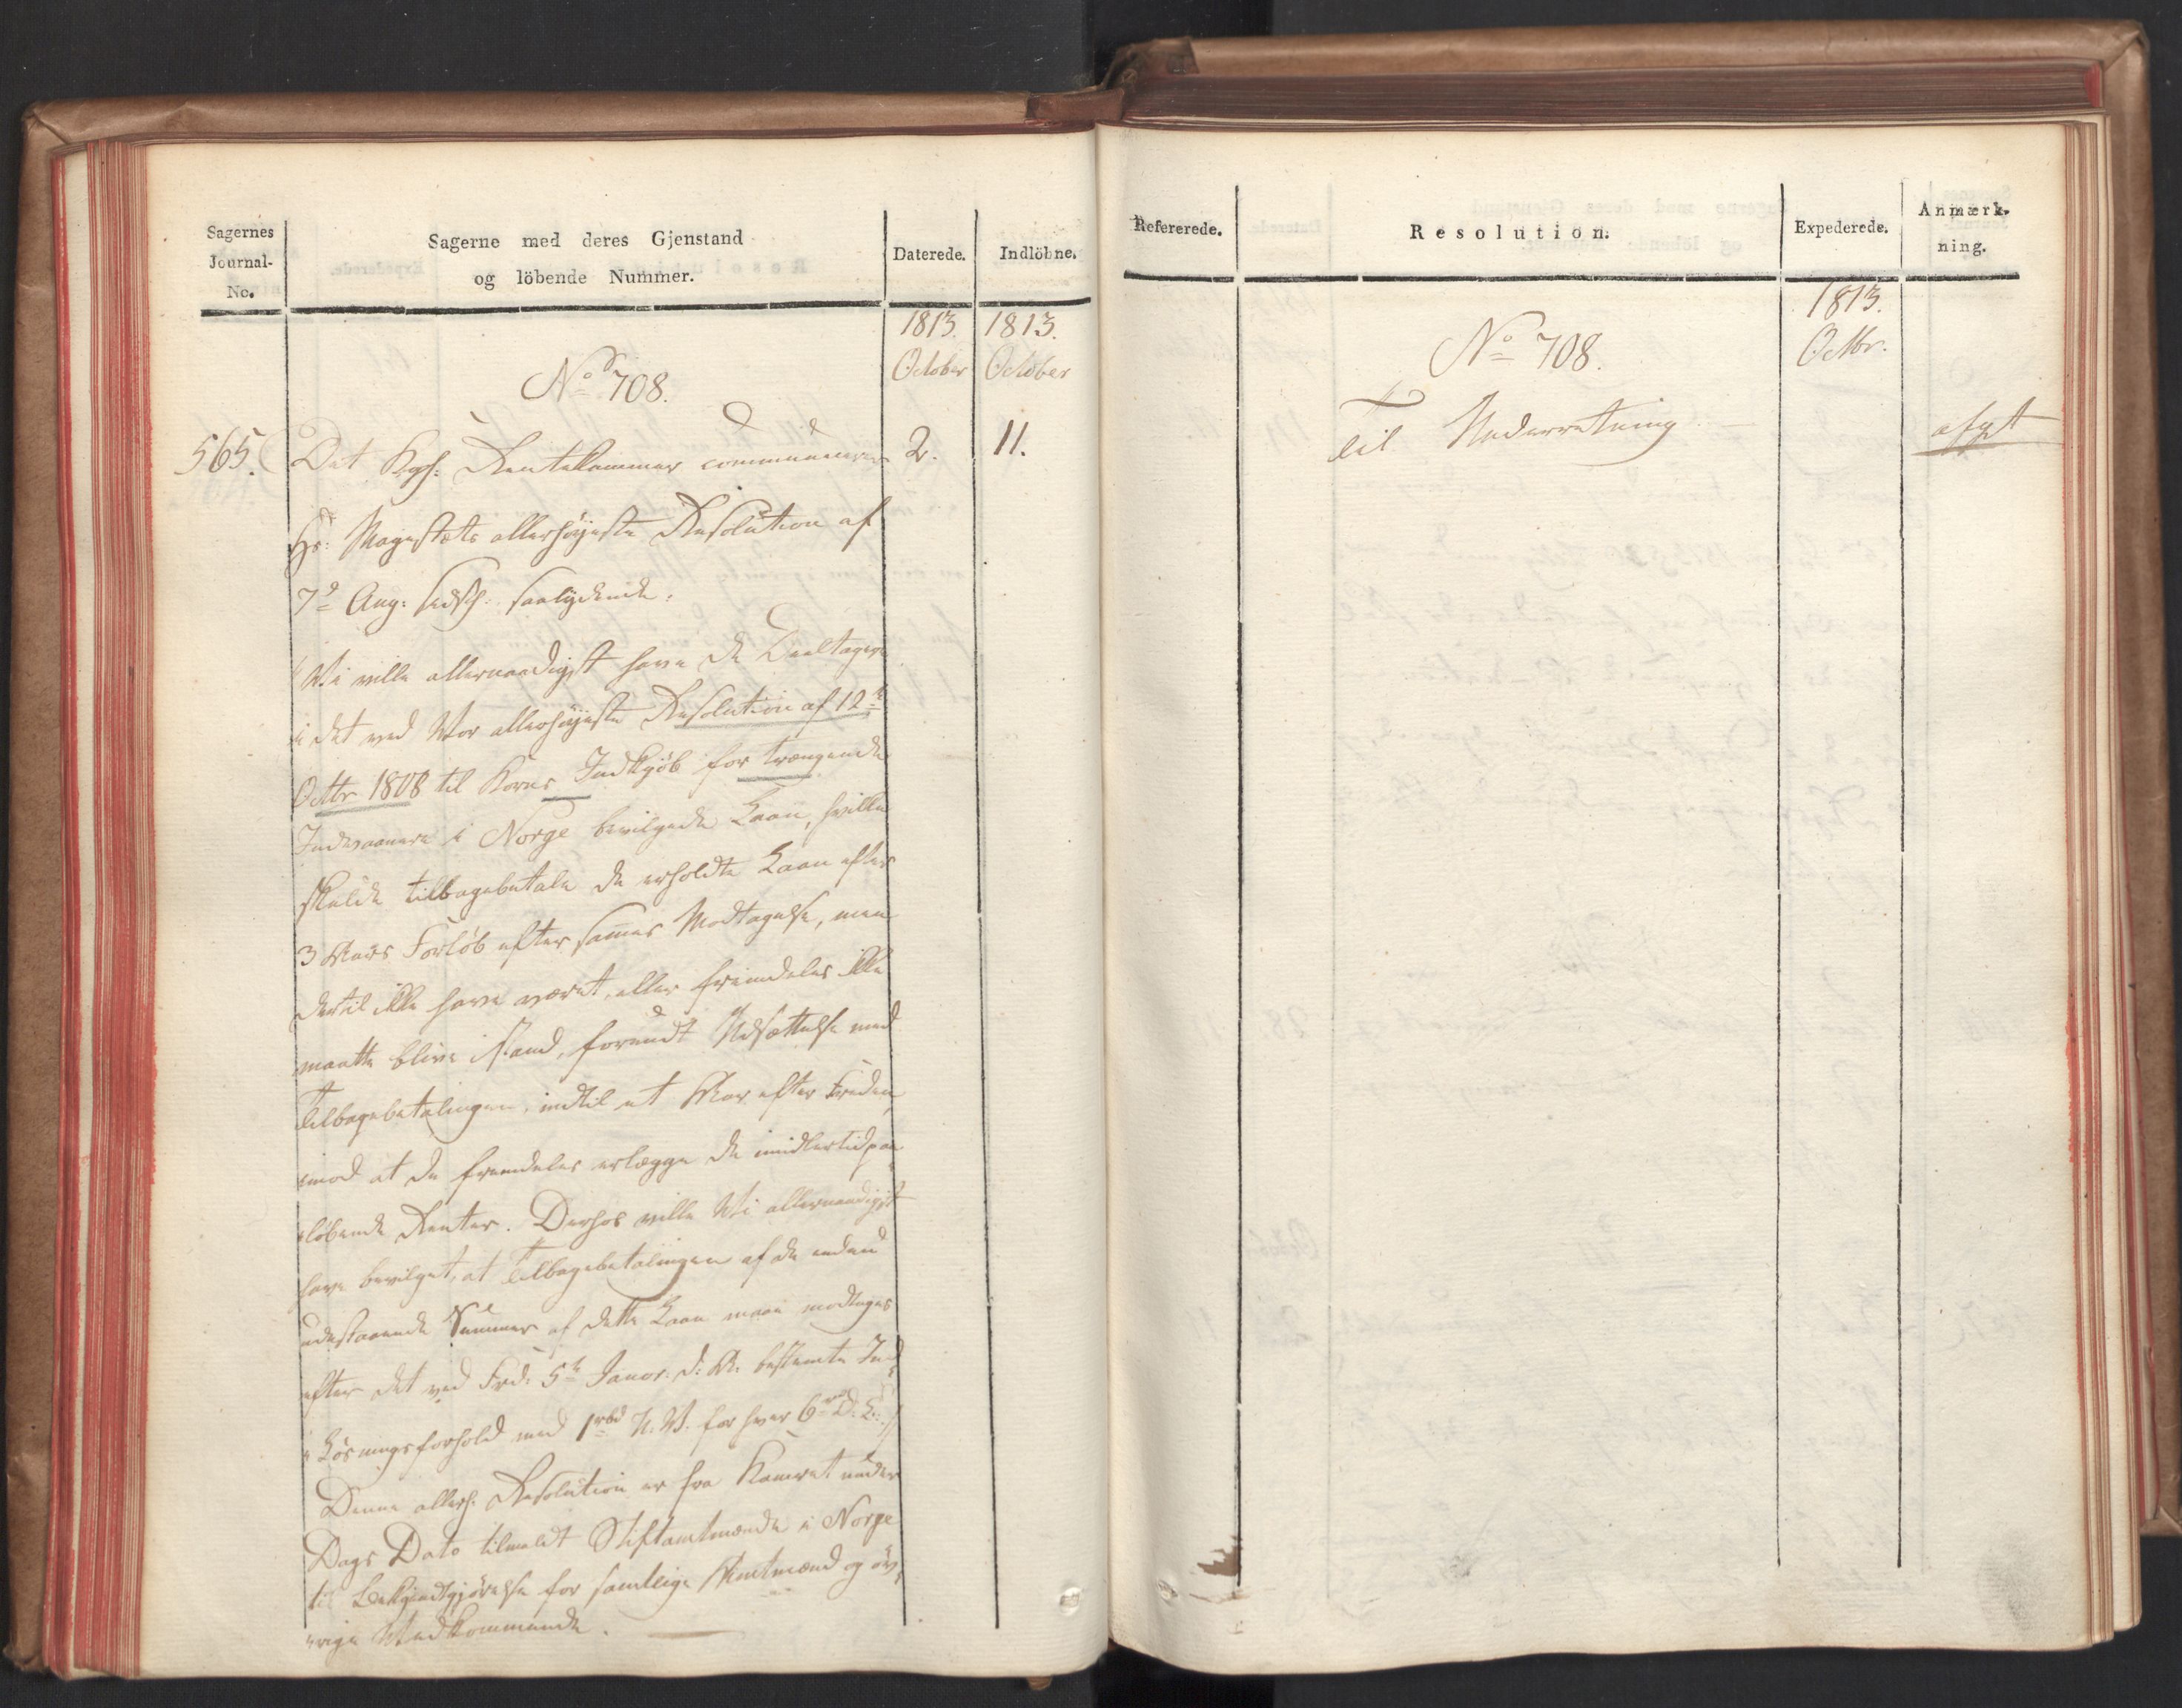 Sagernes
Journal-
No.
Sagerne med deres Gjenstand
og löbende Nummer.
Daterede.
Indlöbne.
1813. 1813.
October October
No 708.
565. Det Kgl: Rentekammer communicerer 2. 11.
Hs: Majestæts allerhøyeste Resolution af
7de Aug: sidstl: saalydende:
"Vi ville allernaadigst have de Deeltagere
i det ved Vor allerhøyeste Resolution af 12te
Octbr 1808 til Korns Indkjöb for trængende
Indvaanere i Norge bevilgede Laan, hvilke
skulde tilbagebetale de erholdte Laan efter
3 Aars Forløb efter sammes Modtagelse, men
dertil ikke have været, eller fremdeles ikke
maatte blive istand, forundt Udsættelse med
Tilbagebetalingen, indtil et Aar efter Freden,
imod at de fremdeles erlægge de imidlertid paa
löbende Renter. Derhos ville Vi allernaadigst
have bevilget, at Tilbagebetalingen af de endnu
udestaaende Summer af dette Laan maae modtages
efter det ved Frd: 5te Janor. d: A. bestemte Ind
Løsningsforhold med 1 rbd N. V. for hver 6 rd D: C:/
Denne allerh: Resolution er fra Kamret under
Dags Dato tilmeldt Stiftamtmændene i Norge
til Bekjendtgjørelse for samtlige Amtmænd og öv
rige Vedkommende.
Refererede.
Resolution.
Expederede.
Anmærk-
ning.
1813.
Octbr.
No 708.
Til Underretning afgt